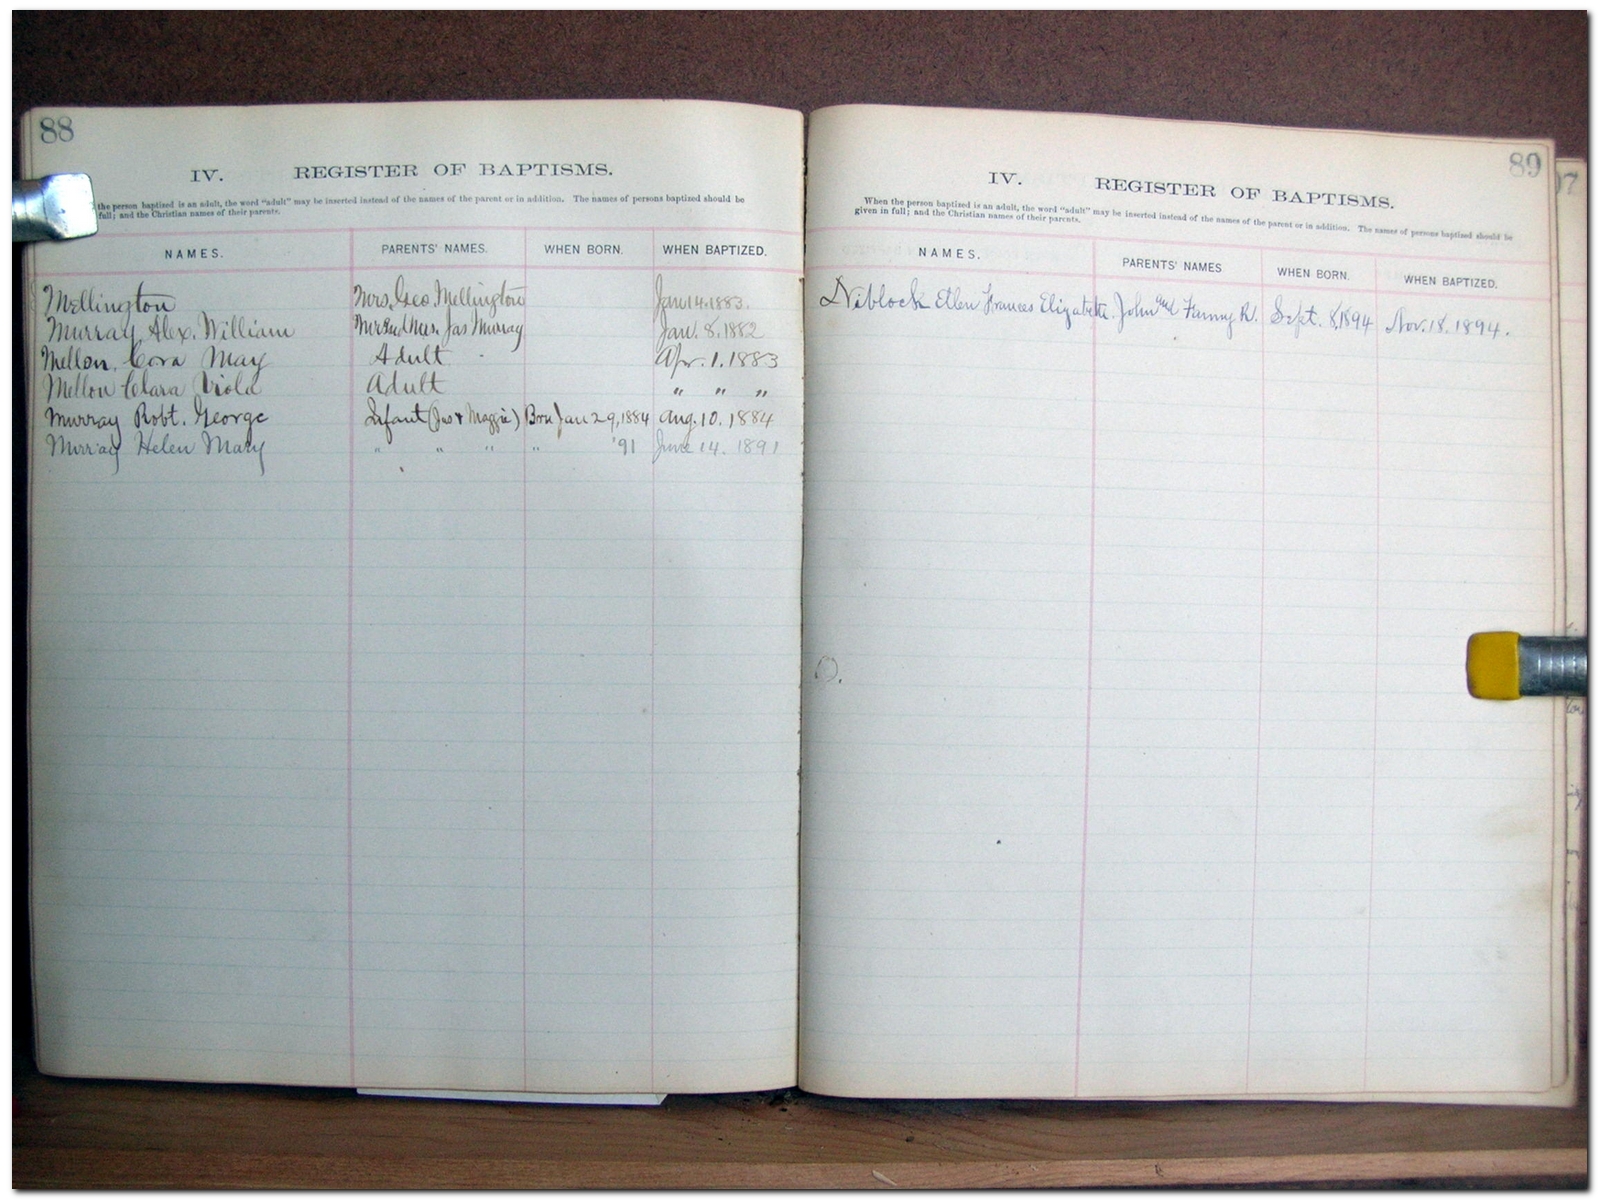 88
IV. REGISTER OF BAPTISMS.
the person baptized is an adult, the word "adult" may be inserted instead of the names of the parent or in addition. The names of persons baptized should be
full; and the Christian names of their parents.
NAMES. PARENTS' NAMES. WHEN BORN. WHEN BAPTIZED.
Mellington Mrs. Geo. Mellington Jan 14. 1883.
Murray Alex. William Mr and Mrs. Jas Murray Jan. 8. 1882
Mellon, Cora May Adult Apr. 1. 1883
Mellon Clara Viola Adult " " "
Murray Robt. George Infant (Jas & Maggie) Born Jan 29, 1884 Aug. 10. 1884
Murray Helen Mary " " " " '91 June 14. 1891
89
IV. REGISTER OF BAPTISMS.
When the person baptized is an adult, the word "adult" may be inserted instead of the names of the parent or in addition. The names of persons baptized should be
given in full; and the Christian names of their parents.
NAMES. PARENTS' NAMES WHEN BORN. WHEN BAPTIZED.
Niblock Ellen Frances Elizabeth. John and Fanny R. Sept. 8, 1894 Nov. 18. 1894.
97